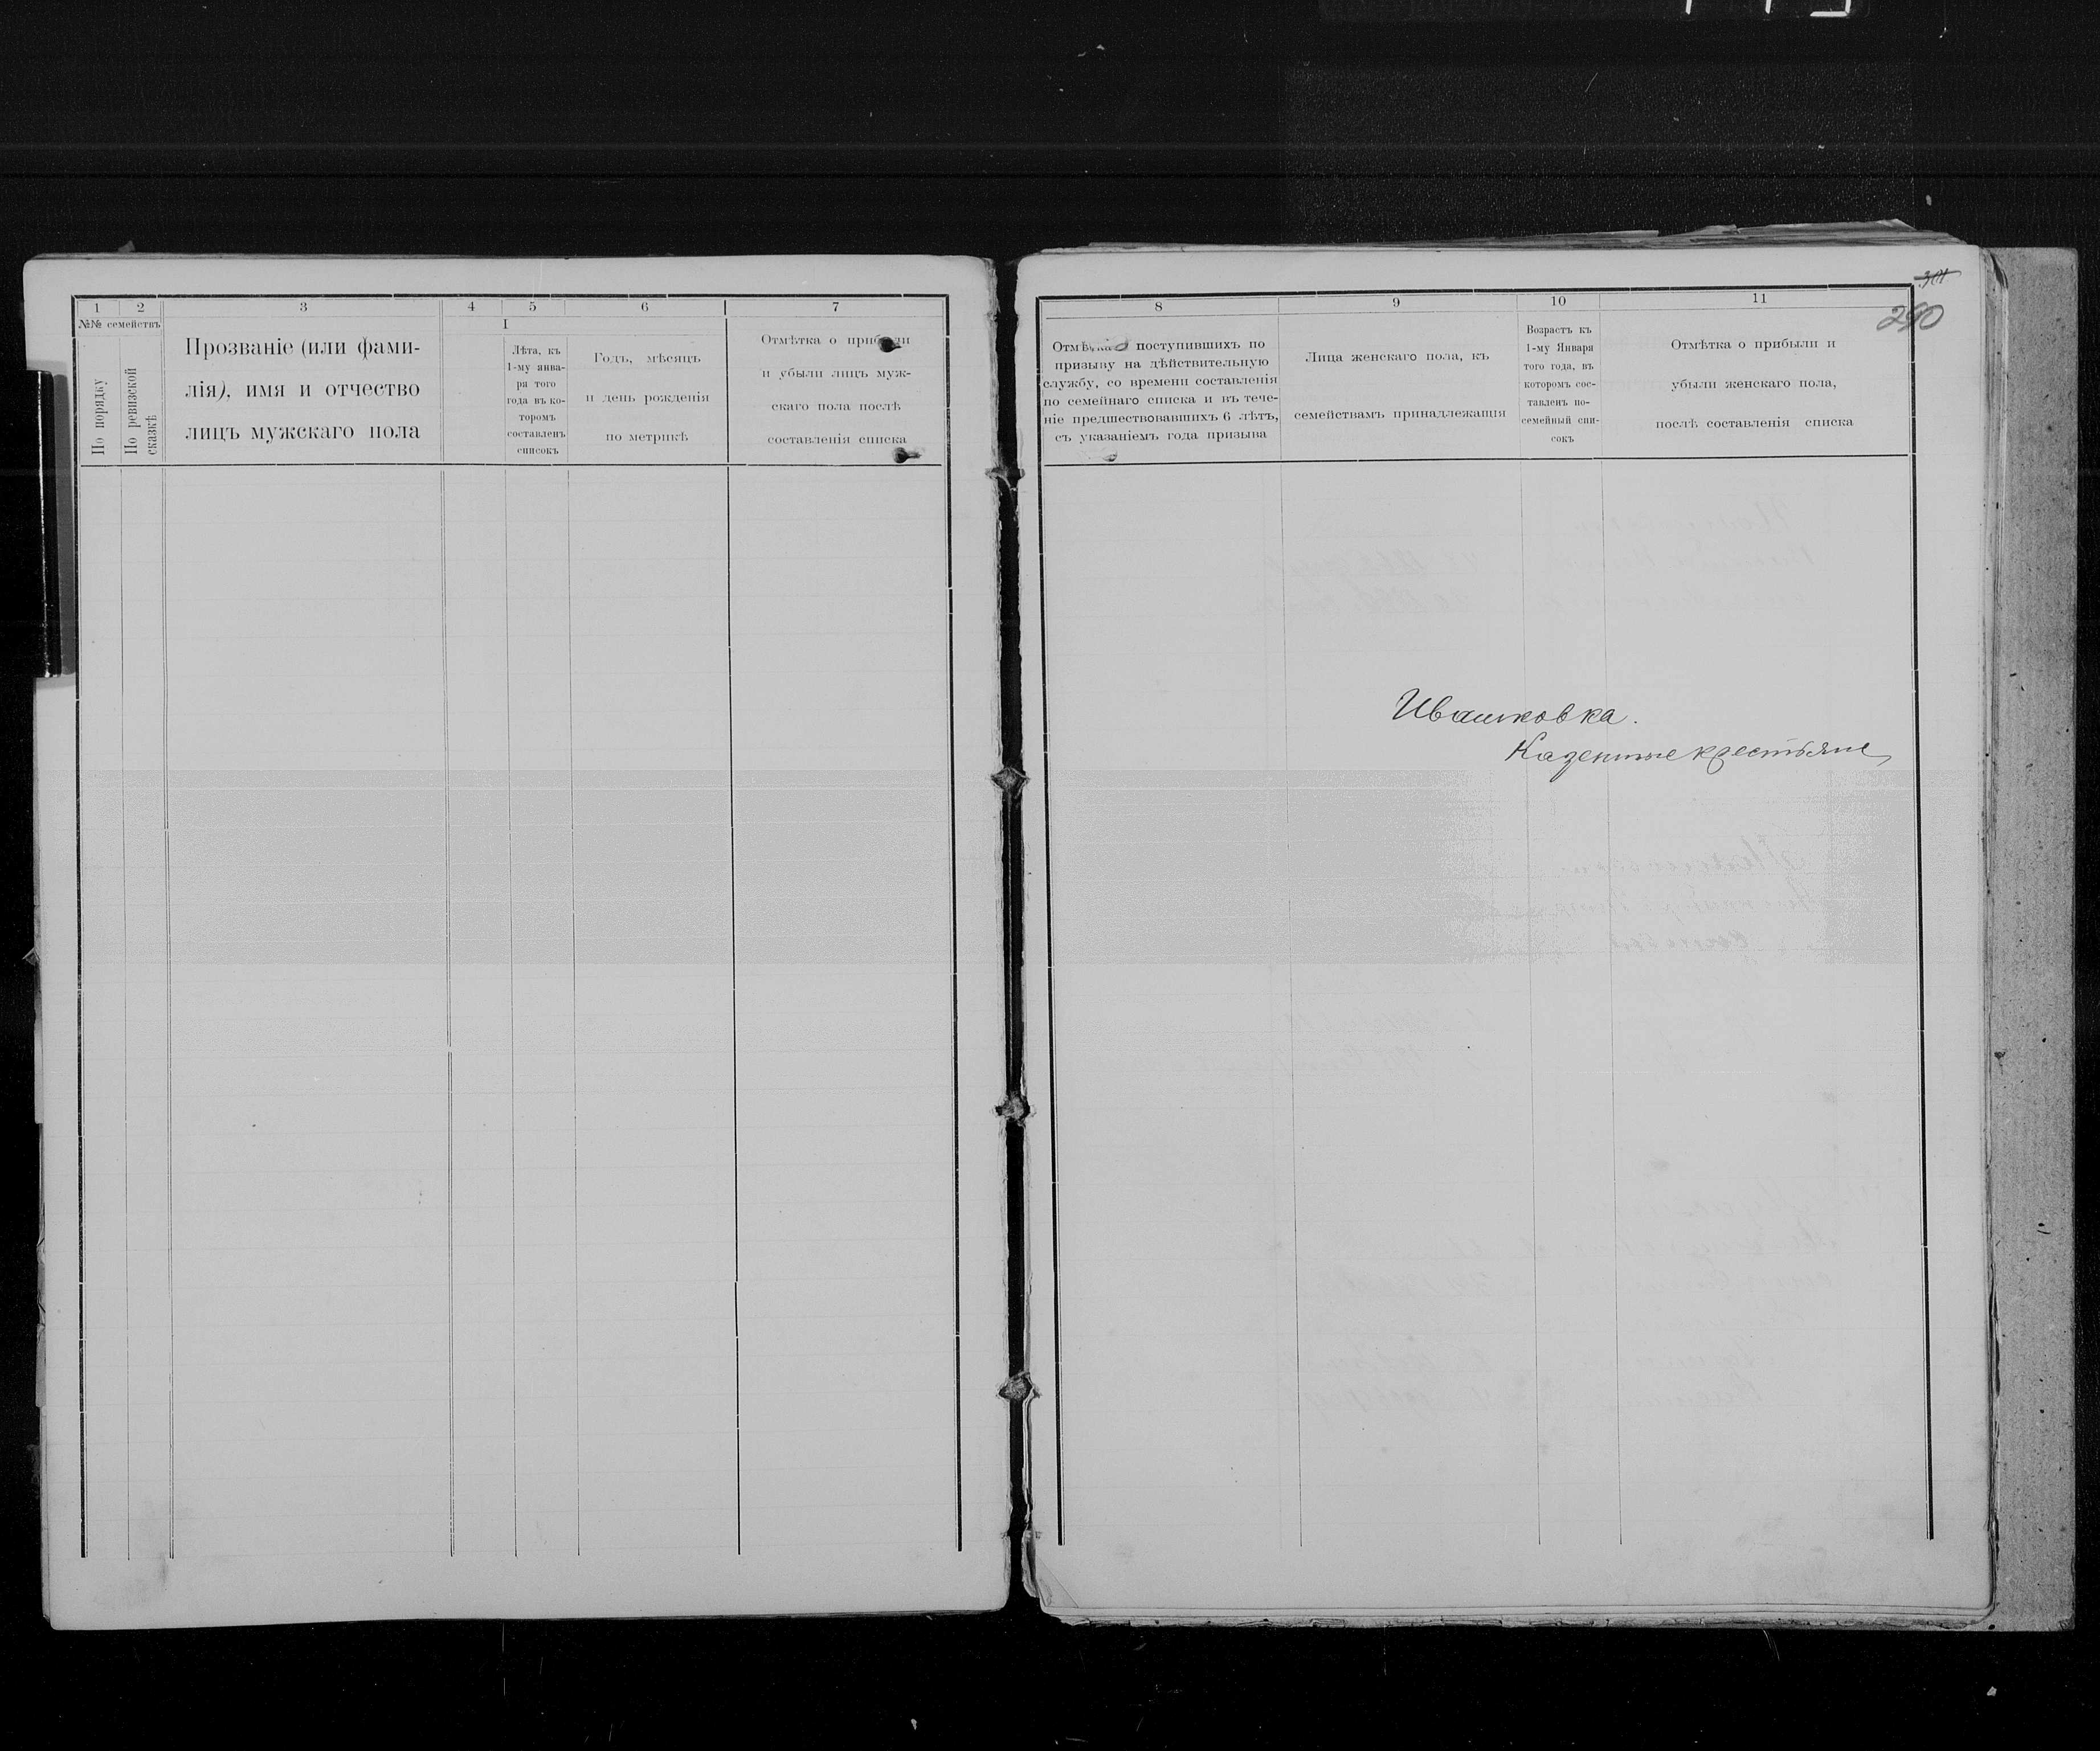 1 2 3 4 5 6 7
№№ семействъ
По порядку
По ревизской сказкѣ
Прозваніе (или фами-
лія), имя и отчество
лицъ мужскаго пола
I
Лѣта, къ
1-му янва-
ря того
года въ ко-
торомъ
составленъ
списокъ
Годъ, мѣсяцъ
и день рожденія
по метрикѣ
Отмѣтка о прибыли
и убыли лицъ муж-
скаго пола послѣ
составленія списка
8 9 10 11
290
поступившихъ по
призыву на дѣйствительную
службу, со времени составленія
по семейнаго списка и въ тече-
ніе предшествовавшихъ 6 лѣтъ,
съ указаніемъ года призыва
Лица женскаго пола, къ
семействамъ принадлежащія
Возрастъ къ
1-му Января
того года, въ
которомъ сос-
тавленъ по-
семейный спи-
сокъ
Отмѣтка о прибыли и
убыли женскаго пола,
послѣ составленія списка
Ивашковка.
Казенные крестьяне